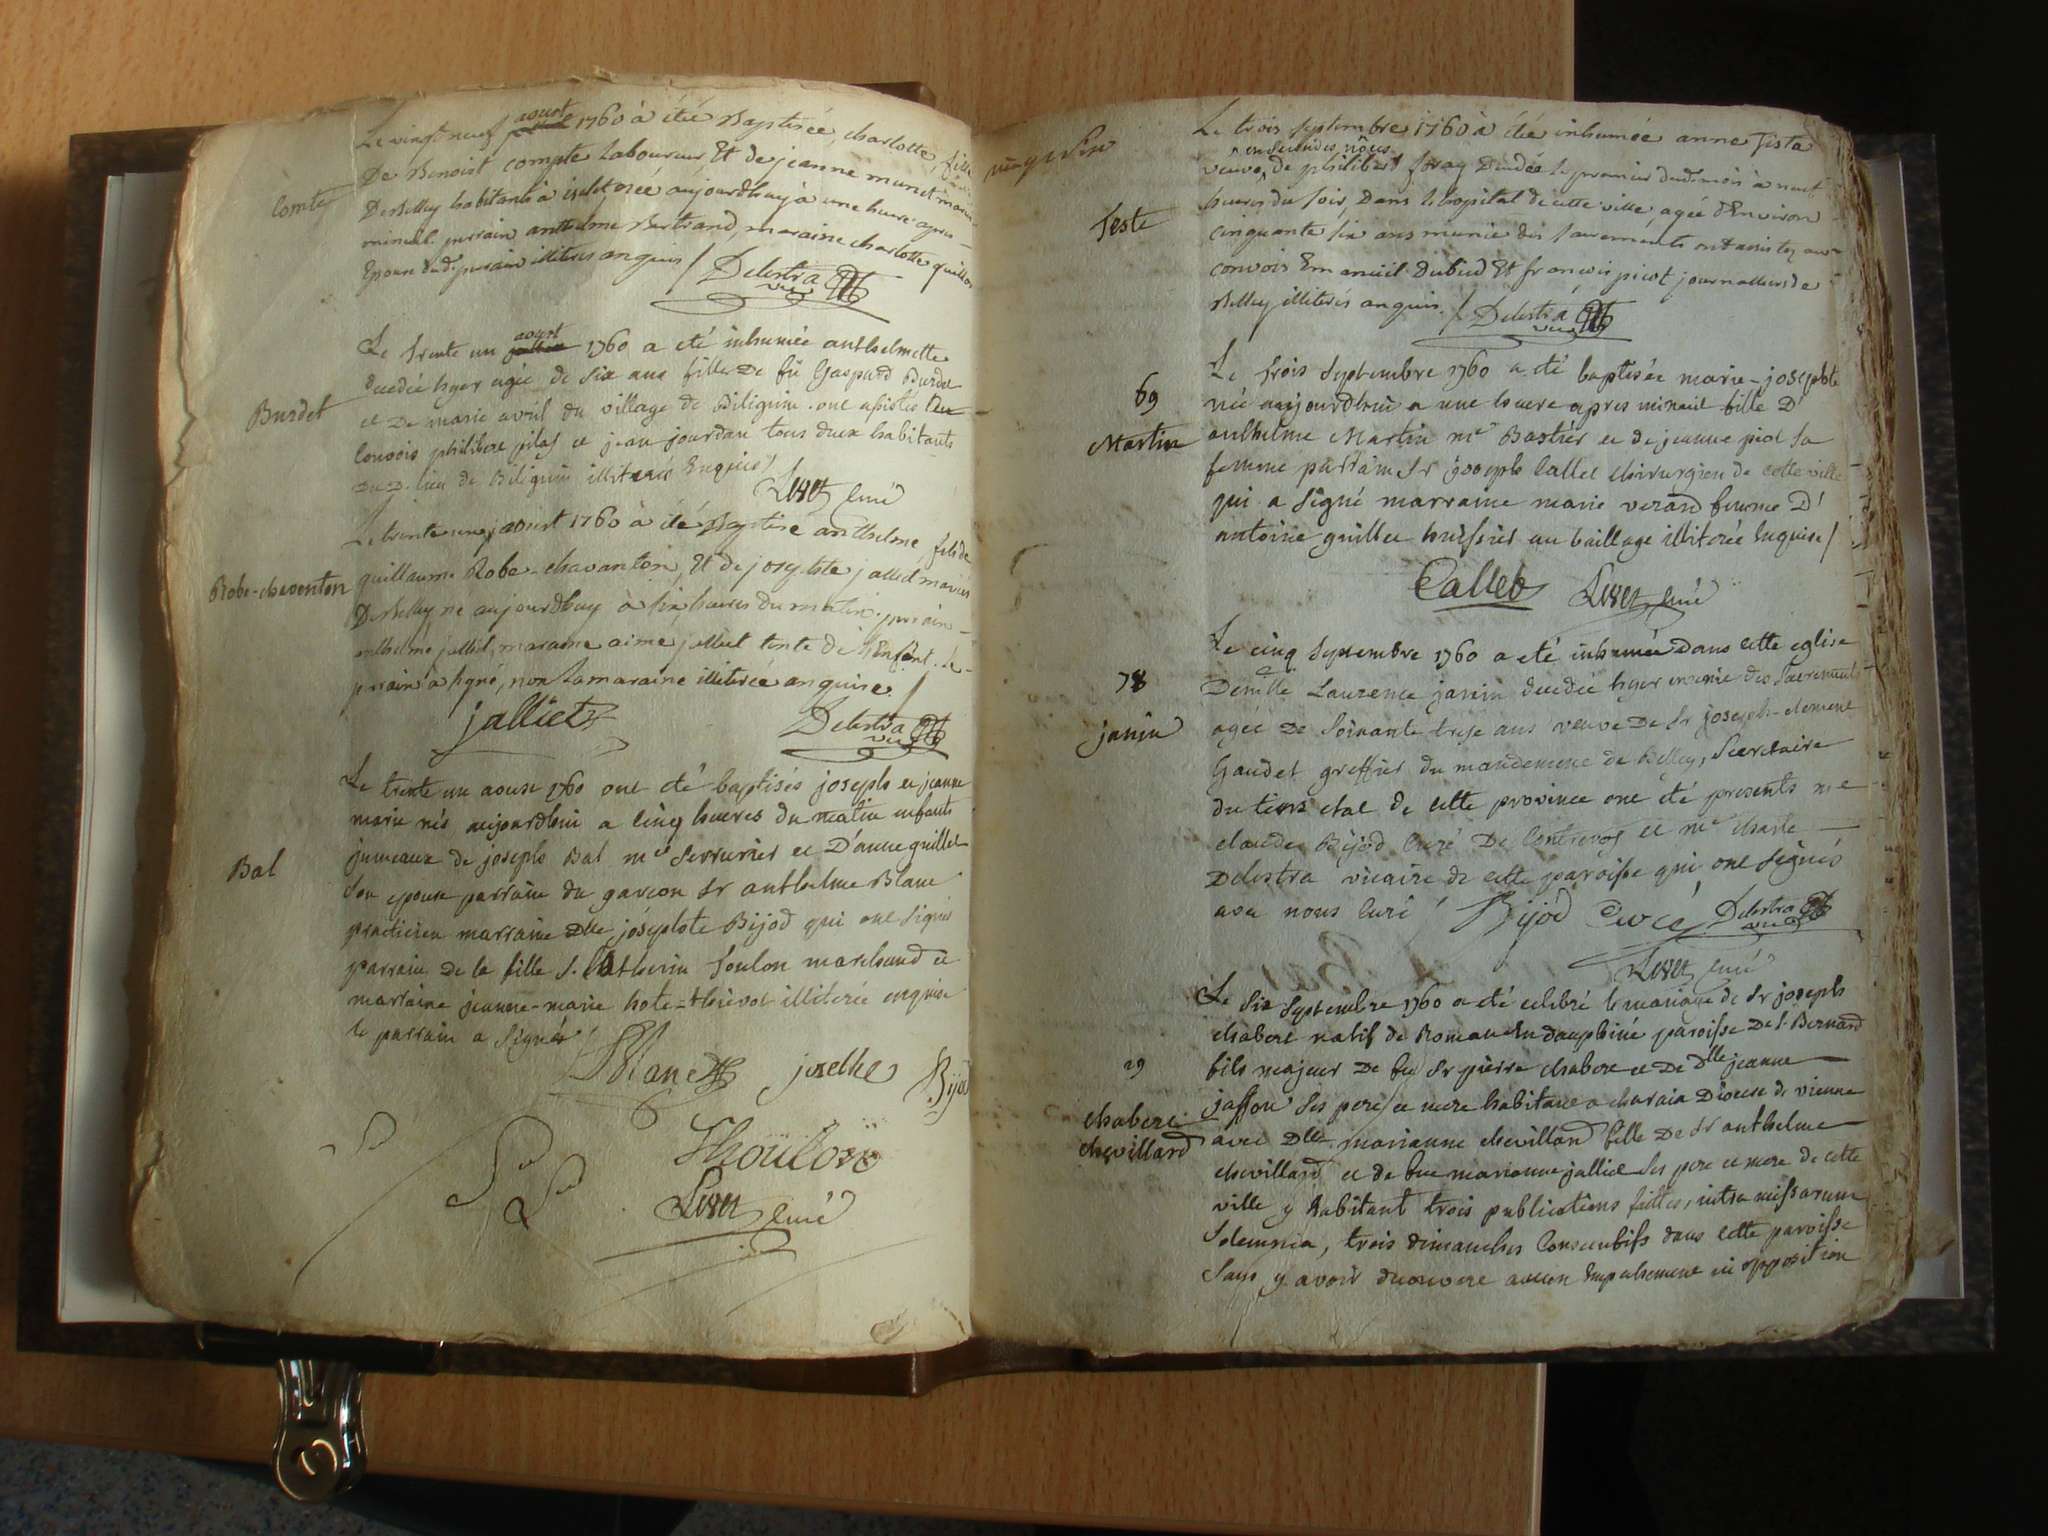 Comte
Le vingt neuf aoust 1760 à été Baptisée, charlotte, fille
De Benoist compte Laboureur Et de jeanne munet mariés
De Belley habitants à née aujourdhuy à une heure apres
minuit. parrain anthelme Bertrand, maraine charlotte quillon
Epouse dud. parain illiteres enquis / Delestra
vic
Burdet
Le trente un aoust 1760 a eté inhumée anthelmette
decedée hyer agée de six ans fille De fû Gaspard Burdet
et De marie avril du village de Biliguin. ont assistés au
convois philibert pilas et jean jourdan tous deux habitants
Du D. lieu de Biliguin illiterés Enquis /
curé
Robe-chaventon
Le trente un aoust 1760 à été Baptisé anthelme fils de
guillaume Robe-chavanton, Et de josephte jalliet mariés
De Belley né aujourdhuy à six heures du matin. parain
anthelme jalliet, maraine aimé jalliet tente de l'Enfant. Le
parain à signé, non La maraine illiterée enquise /
jalliet Delestra
vic
Bal
Le trente un aoust 1760 ont eté baptisés joseph et jeanne
marie nés aujourdhui a cinq heures du matin enfants
jumeaux de joseph Bal me serrurier et D'anne guillet
son epouse parrain du garçon sr anthelme Blanc
praticien marraine Dlle josephte Bijod qui ont signés
parrain de la fille s. Catherin Toulon marchand et
marraine jeanne-marie hote-thievot illiterée enquise
le parrain a signé /
Blanc josephe Bijod
Thoulon
curé
Teste
Le trois septembre 1760 à été inhumée anne Testa
en secondes nôces
veuve, de philibert foray Decedée le premier dudt mois à neuf
heures du soir, Dans L'hopital de cette ville, agée d'Environ
cinquante six ans munie des sacrements ont assistez au
convois Emanuel Dubud Et francois picot journalliers de
Belley illiterés enquis. / Delestra
vic
69
Martin
Le trois septembre 1760 a eté baptisée marie-josephte
née aujourdhui a une heure apres minuit fille D'
anthelme Martin me Bastier et de jeanne piot sa
femme parrain sr joseph Callet chirurgien de cette ville
qui a signé marraine marie verard femme D'
antoine guillet huissier au baillage illiterée Enquise /
Callet curé
78
janin
Le cinq septembre 1760 a eté inhumée Dans cette eglise
Demlle Laurence janin decedée hyer munie des sacrements
agée De soixante treize ans veuve De sr joseph-clement
Gaudet greffier du mandement de Belley, secretaire
du tiers etat de cette province ont eté presents me
claude Bijod Curé De Contrevos et me charle
Delestra vicaire de cette paroisse qui ont signés
avec nous Curé / Bijod Curé Delestra
vic
curé
29
chabert
chevillard
Le six septembre 1760 a eté celebré le mariage de sr joseph
chabert natif de Roman En dauphiné paroisse De s. Bernard
fils majeur De feu sr pierre chabert et De Dlle jeanne
jaffou ses pere et mere habitant a charaia Diocese de vienne
avec Dlle marianne chevillard fille De sr anthelme
chevillard et de fue marianne jalliet ses pere et mere de cette
ville y habitant trois publications faittes, intra missarum
solemnia, trois dimanches Consecutifs dans cette paroisse
sans y avoir decouvert aucun Empechement ni opposition